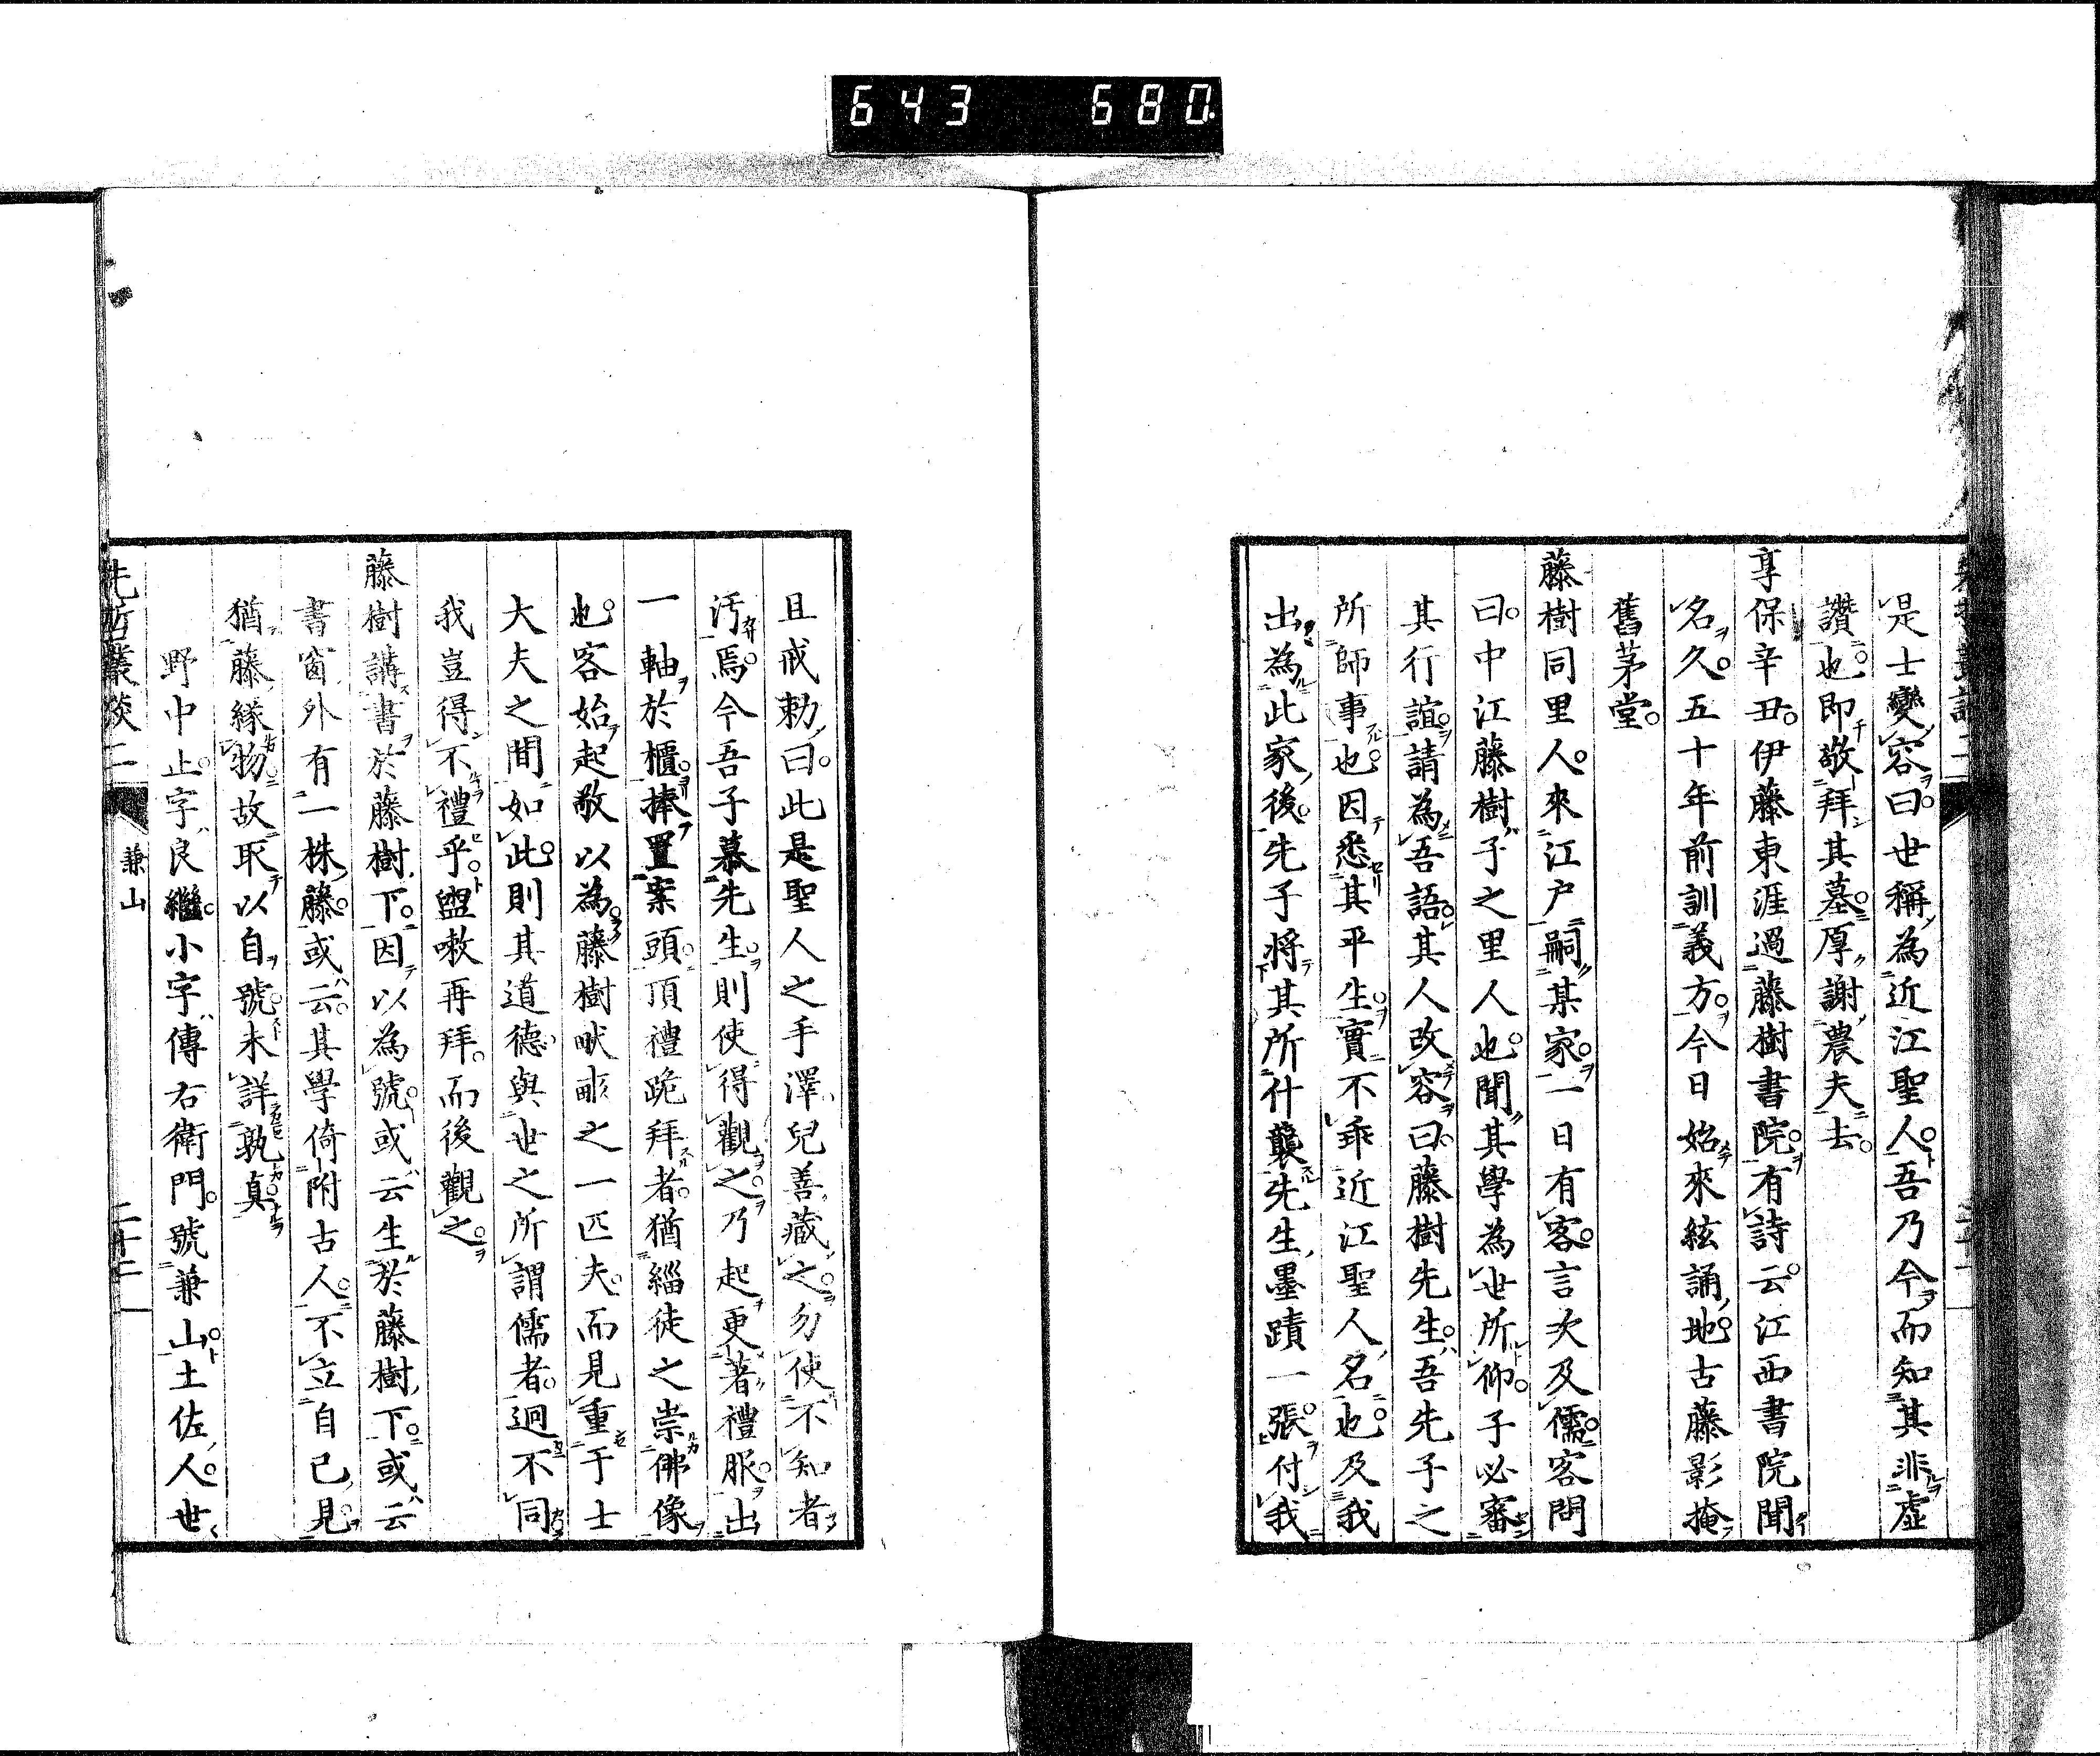 643 680
是士變容曰世稱為近江聖人吾乃今而知其非虛
讚也即敬拜其墓厚謝農夫去
享保辛丑伊藤東涯過藤樹書院有詩云江西書院聞
名久五十年前訓義方今日始來絃誦地古藤影掩
舊茅堂
藤樹同里人來江戶嗣某家一日有客言次及儒客問
曰中江藤樹子之里人也聞其學為世所仰子必審
其行誼請為吾語其人改容曰藤樹先生吾先子之
所師事也因悉其平生實不乖近江聖人名也及我
出為此家後先子將其所什襲先生墨蹟一張付我
且戒勅曰此是聖人之手澤兒善藏之勿使不知者
汚焉今吾子慕先生則使得觀之乃起更著禮服出
一軸於櫃捧置案頭頂禮跪拜者猶緇徒之崇佛像
也客始起敬以為藤樹畎畝之一匹夫而見重于士
大夫之間如此則其道德與世之所謂儒者迥不同
我豈得不禮乎盥嗽再拜而後觀之
藤樹講書於藤樹下因以為號或云生於藤樹下或云
書窗外有一株藤或云其學倚附古人不立自己見
猶藤緣物故取以自號未詳孰真
野中止字良繼小字傳右衛門號兼山土佐人世
先哲叢談二
兼山
二十二